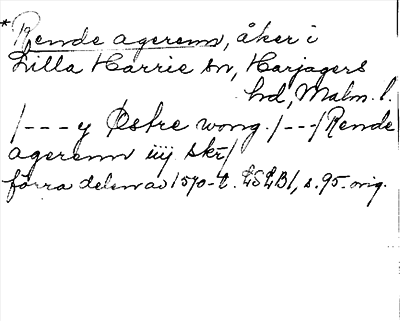 *Rende agerenn, åker i
Lilla Harrie sn, Harjagers
hd, Malm. l.
/--- y Østre wong. /---/ Rende
agerenn iiij skr/
förra delen av 1570-t. LSLB1, s. 95. orig.